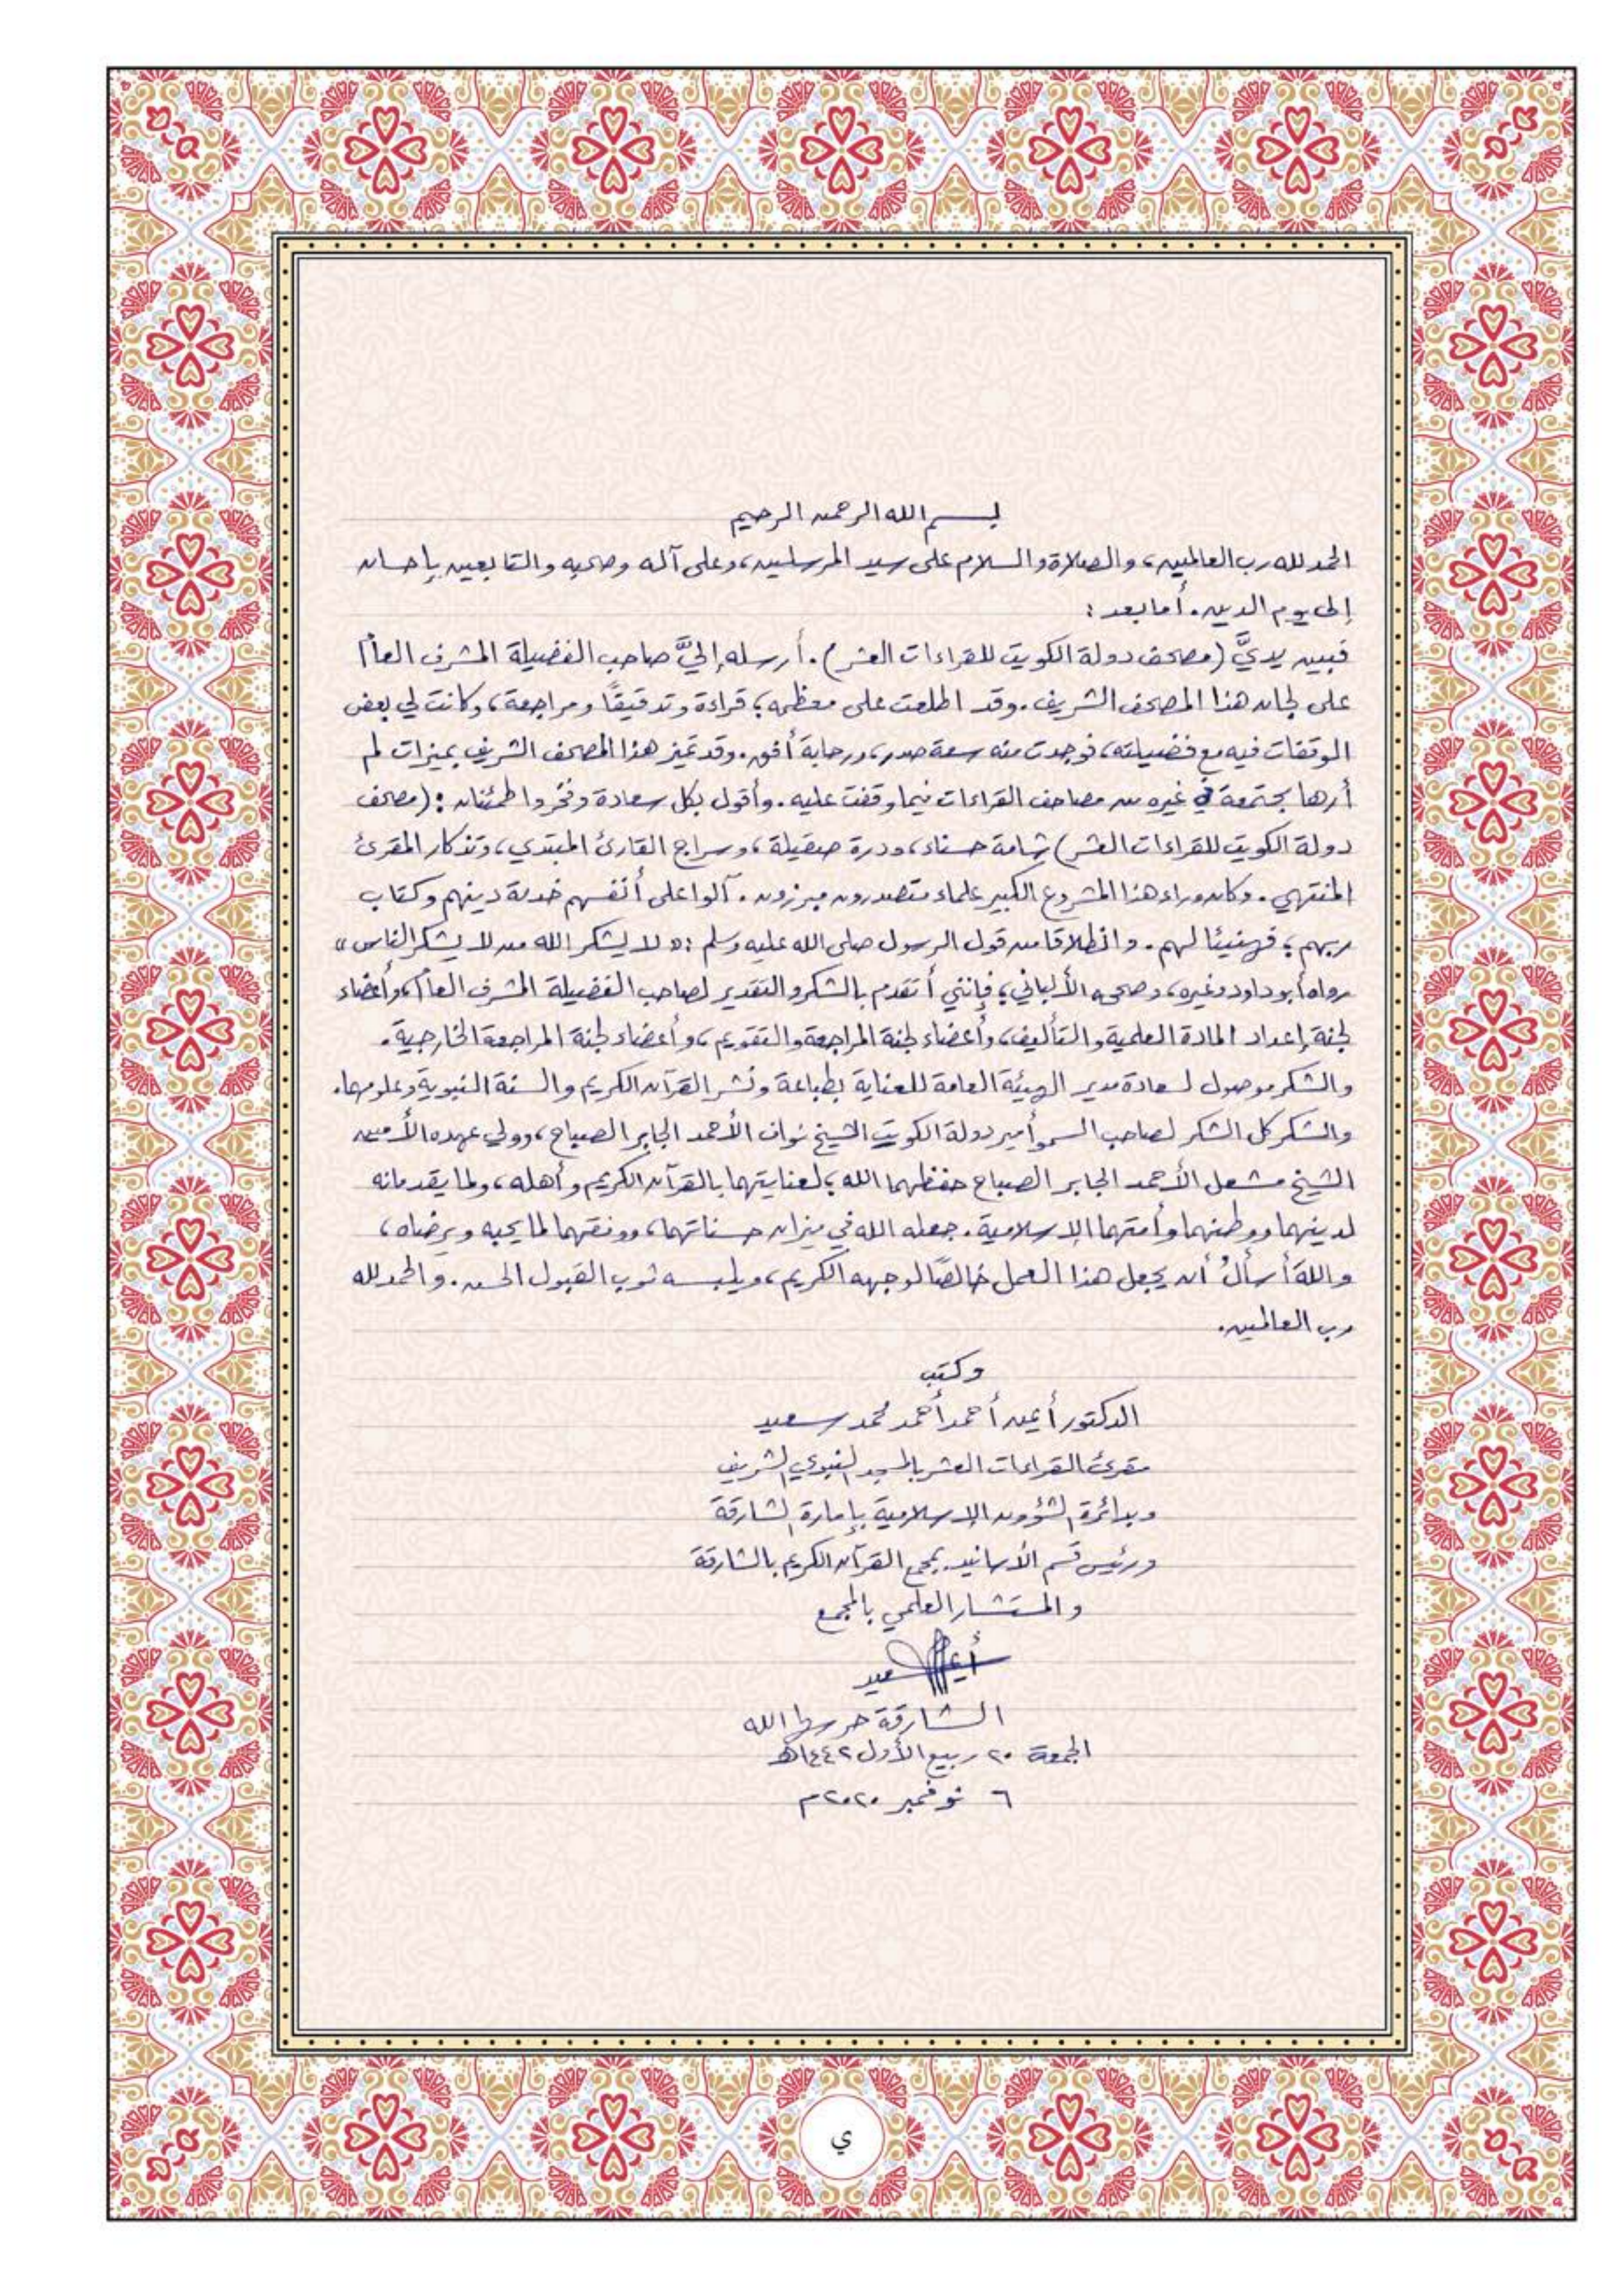 بسم الله الرحمن الرحيم
الحمد لله رب العالمين، والصلاة والسلام على سيد المرسلين، وعلى آله وصحبه والتابعين بإحسان
إلى يوم الدين. أما بعد:
فبين يديَّ (مصحف دولة الكويت للقراءات العشر). أرسله إليَّ صاحب الفضيلة المشرف العام
على لجان هذا المصحف الشريف. وقد اطلعت على معظمه؛ قراءة وتدقيقًا ومراجعة، وكانت لي بعض
الوقفات فيه مع فضيلته، فوجدت منه سعة صدر، ورحابة أفق. وقد تميز هذا المصحف الشريف بميزات لم
أرها مجتمعة في غيره من مصاحف القراءات فيما وقفت عليه. وأقول بكل سعادة وفخر واطمئنان: (مصحف
دولة الكويت للقراءات العشر) شامة حسناء، ودرة صقيلة، وسراج القارئ المبتدي، وتذكار المقرئ
المنتهي. وكان وراء هذا المشروع الكبير علماء متصدرون مبرزون. آلوا على أنفسهم خدمة دينهم وكتاب
ربهم؛ فهنيئا لهم. وانطلاقا من قول الرسول صلى الله عليه وسلم: «لا يشكر الله من لا يشكر الناس»
رواه أبو داود وغيره، وصححه الألباني؛ فإنني أتقدم بالشكر والتقدير لصاحب الفضيلة المشرف العام، وأعضاء
لجنة إعداد المادة العلمية والتأليف، وأعضاء لجنة المراجعة والتقويم، وأعضاء لجنة المراجعة الخارجية.
والشكر موصول لسعادة مدير الهيئة العامة للعناية بطباعة ونشر القرآن الكريم والسنة النبوية وعلومها.
والشكر كل الشكر لصاحب السمو أمير دولة الكويت الشيخ نواف الأحمد الجابر الصباح، وولي عهده الأمين
الشيخ مشعل الأحمد الجابر الصباح حفظهما الله؛ لعنايتهما بالقرآن الكريم وأهله، ولما يقدمانه
لدينهما ووطنهما وأمتهما الإسلامية. جعله الله في ميزان حسناتهما، ووفقهما لما يحبه ويرضاه،
واللهَ أسألُ أن يجعل هذا العمل خالصًا لوجهه الكريم، ويلبسه ثوب القبول الحسن. والحمد لله
رب العالمين.
وكتب
الدكتور أيمن أحمد أحمد محمد سعيد
مقرئ القراءات العشر بالمسجد النبوي الشريف
وبدائرة الشؤون الإسلامية بإمارة الشارقة
ورئيس قسم الأسانيد بمجمع القرآن الكريم بالشارقة
والمستشار العلمي بالمجمع
أيمن سعيد
الشارقة حرسها الله
الجمعة ٢٠ ربيع الأول ١٤٤٢هـ
٦ نوفمبر ٢٠٢٠م
ي